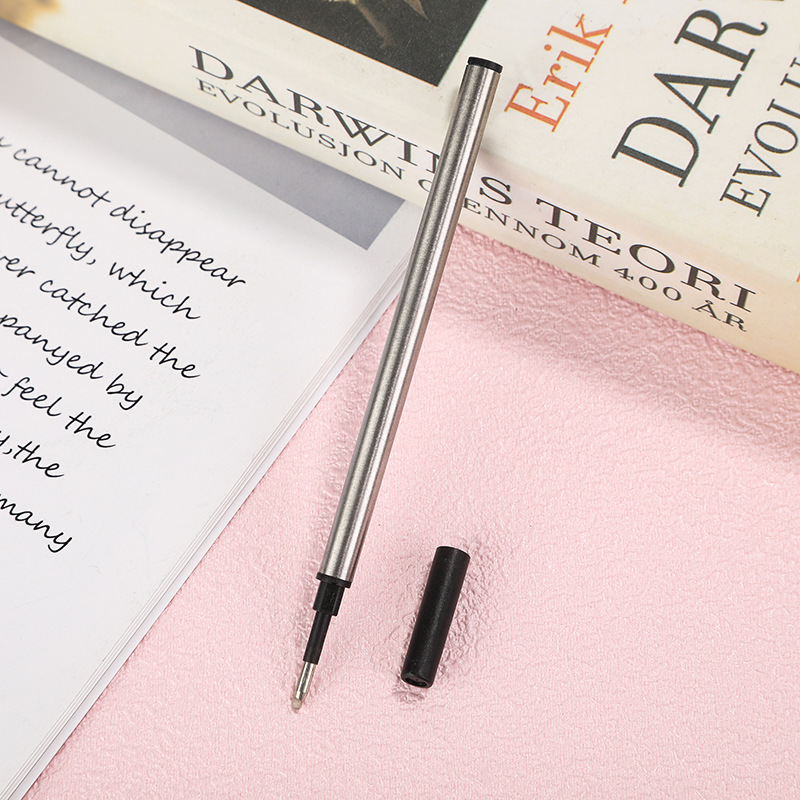 DARWI S TEORI
EVOLUSJON G ENNOM 400 ÅR
Erik
DAR
EVOLU
cannot disappear
utterfly, which
ver catched the
panyed by
feel the
y, the
many